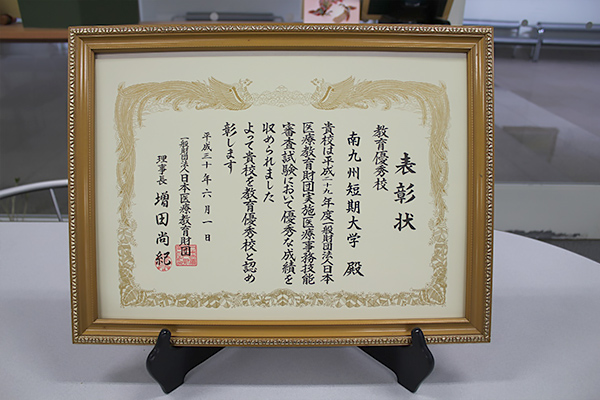 表彰状
教育優秀校
南九州短期大学 殿
貴校は平成二十九年度一般財団法人日本
医療教育財団実施医療事務技能
審査試験において優秀な成績を
収められました
よって貴校を教育優秀校と認め
彰します
平成三十年六月一日
一般財団法人日本医療教育財団
理事長 増田尚紀